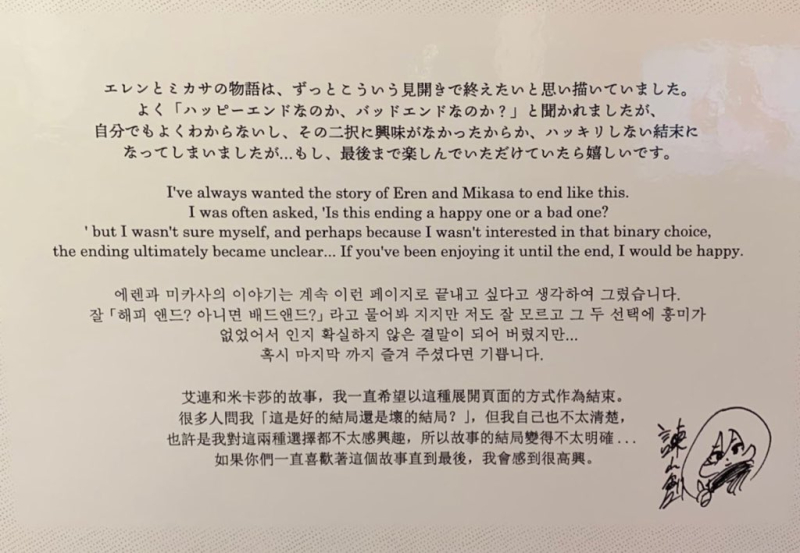 エレンとミカサの物語は、ずっとこういう見開きで終えたいと思い描いていました。
よく「ハッピーエンドなのか、バッドエンドなのか？」と聞かれましたが、
自分でもよくわからないし、その二択に興味がなかったからか、ハッキリしない結末に
なってしまいましたが...もし、最後まで楽しんでいただけていたら嬉しいです。
I've always wanted the story of Eren and Mikasa to end like this.
I was often asked, 'Is this ending a happy one or a bad one?
' but I wasn't sure myself, and perhaps because I wasn't interested in that binary choice,
the ending ultimately became unclear... If you've been enjoying it until the end, I would be happy.
에렌과 미카사의 이야기는 계속 이런 페이지로 끝내고 싶다고 생각하여 그렸습니다.
잘 「해피 앤드? 아니면 배드앤드?」 라고 물어봐 지지만 저도 잘 모르고 그 두 선택에 흥미가
없었어서 인지 확실하지 않은 결말이 되어 버렸지만...
혹시 마지막 까지 즐겨 주셨다면 기쁩니다.
艾連和米卡莎的故事，我一直希望以這種展開頁面的方式作為結束。
很多人問我「這是好的結局還是壞的結局？」，但我自己也不太清楚，
也許是我對這兩種選擇都不太感興趣，所以故事的結局變得不太明確...
如果你們一直喜歡著這個故事直到最後，我會感到很高興。
諫山創